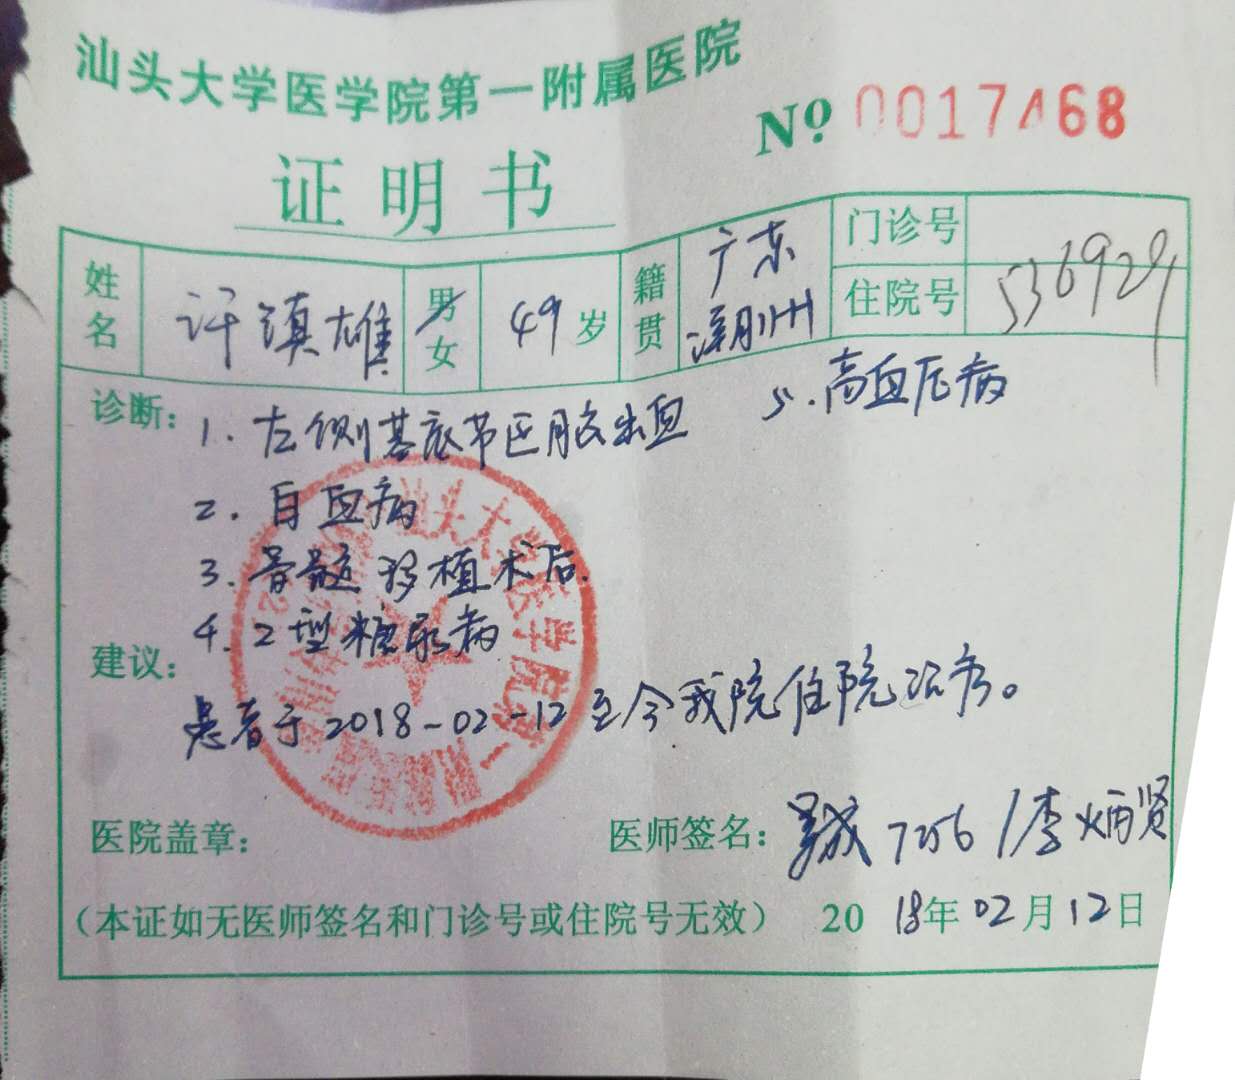 汕头大学医学院第一附属医院
证明书
No 0017468
姓名 许镇雄 男女 49岁 籍贯 广东潮州 门诊号
住院号 536929
诊断: 1. 左侧基底节区脑出血 5. 高血压病
2. 白血病
3. 骨髓移植术后.
4. 2型糖尿病
建议:
患者于2018-02-12至今我院住院治疗。
医院盖章: 医师签名: 7256/李炳贤
(本证如无医师签名和门诊号或住院号无效) 2018年02月12日
汕头大学医学院第一附属医院